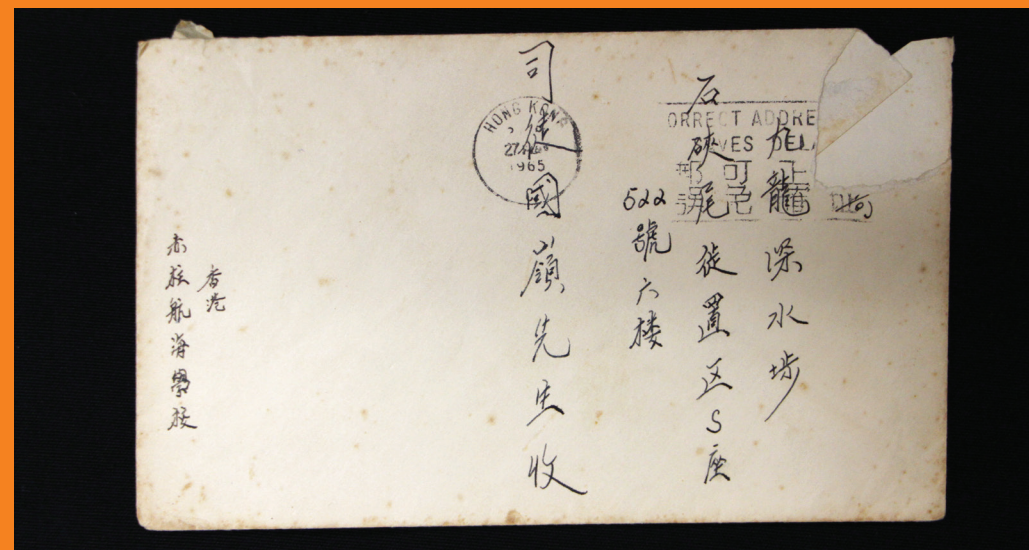 九龍深水埗
石硤尾徙置区S座
522號六楼
司徒國嶺先生收
香港
赤柱航海學校
HONG KONG
27
1965
ORRECT ADDRE
VES DEL